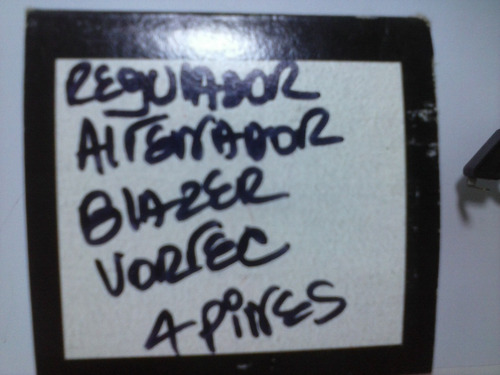 REGULADOR
AlTERNADOR
BlAZER
VORTEC
4 PiNES